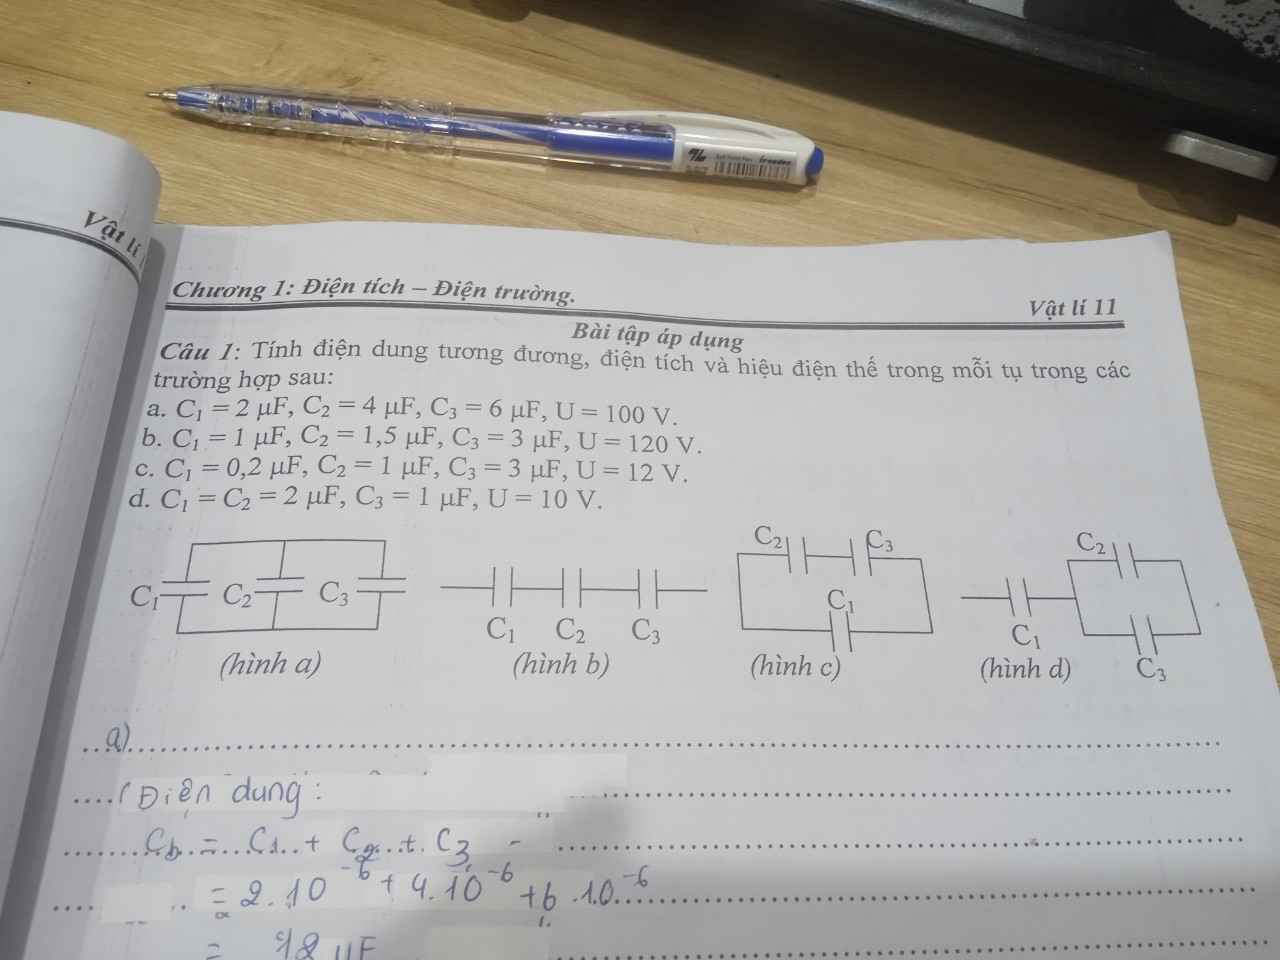 Vật lí
Chương 1: Điện tích – Điện trường.
Vật lí 11
Bài tập áp dụng
Câu 1: Tính điện dung tương đương, điện tích và hiệu điện thế trong mỗi tụ trong các
trường hợp sau:
a. C₁ = 2 μF, C₂ = 4 μF, C₃ = 6 μF, U = 100 V.
b. C₁ = 1 μF, C₂ = 1,5 μF, C₃ = 3 μF, U = 120 V.
c. C₁ = 0,2 μF, C₂ = 1 μF, C₃ = 3 μF, U = 12 V.
d. C₁ = C₂ = 2 μF, C₃ = 1 μF, U = 10 V.
C₁ C₂ C₃
(hình a)
C₁ C₂ C₃
(hình b)
C₂ C₃
C₁
(hình c)
C₂
C₁
C₃
(hình d)
a)
Điện dung:
C_b = C₁ + C₂ + C₃
= 2.10⁻⁶ + 4.10⁻⁶ + 6.10⁻⁶